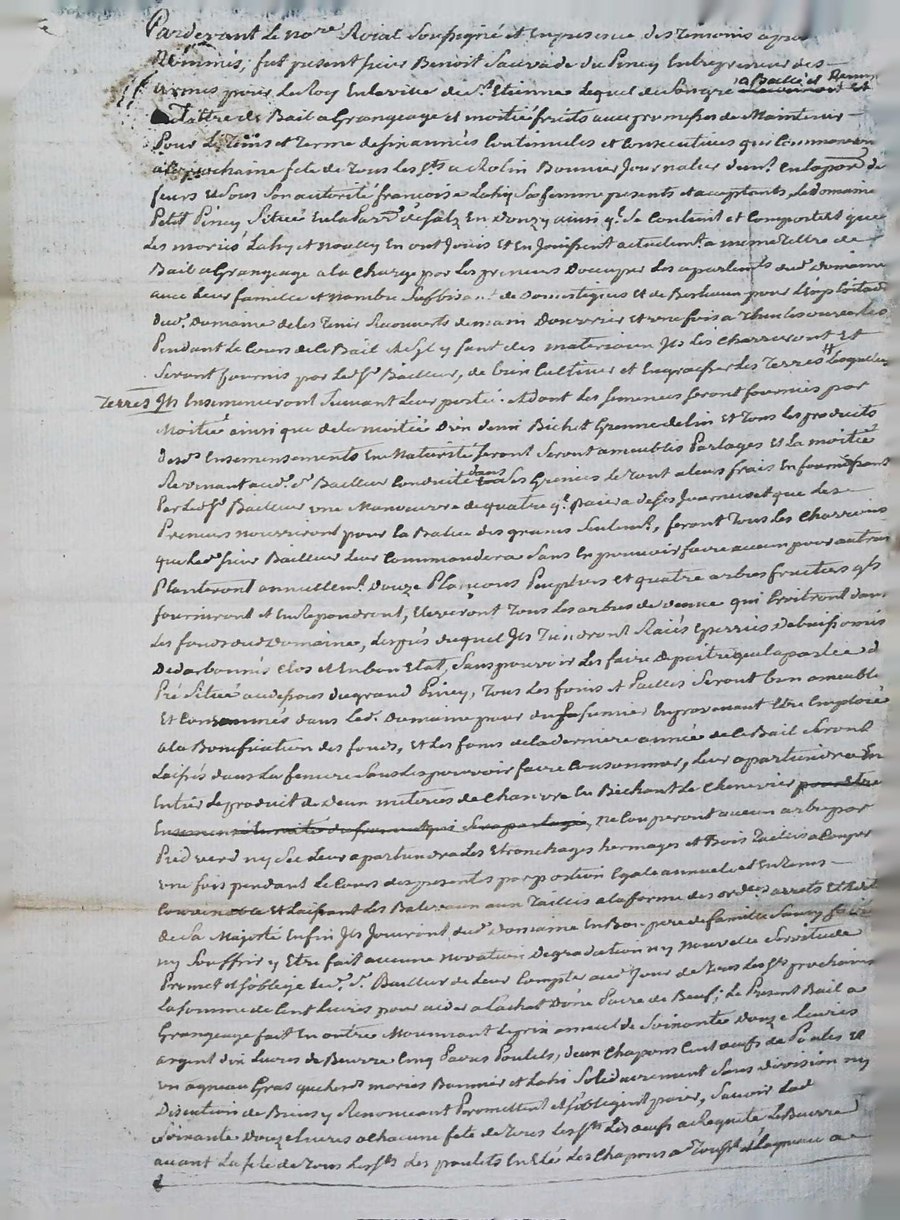 Pardevant Le no.re Roial Soussigné et Enpresence des Temoins apres
Nommés, fut present sieur Benoit Sauvade du Piney Entrepreneur des
armes pour Le Roy En laville de S.t Etienne Lequel de Songré a Baillé et Remis
a Tittre de Bail a Grangeage et moitié fruits avec promesse de Maintenir
Pour Le Tems et Terme de six années Continuelles et Consecutives qui Commenceront
a la prochaine fete de Tous Les S.ts a Bonnier Journalier dem.t En la parr. de
feurs et Sous Son autorité francoise Lahy Sa femme presents et acceptants, Le domaine
Petit Piney Situé En la Par.se de Salz En Donzy ainsi q.l Se Contient et Comporte et que
Les mariés Lahy et En ont Jouis Et En Jouissent actuellem.t a meme Tittre de
Bail a Grangeage a la Charge par Les preneurs Doccuper Les apartem.ts dud. Domaine
avec Leur famille et nombre Suffisant de Domestiques Et de Bestiaux pour Lexploitation
dud. Domaine de les Tenir Recouverts de main Douvrier et une fois a
Pendant Le Cours de Ce Bail Et Sil y faut des materiaux Ils Les Charrieront Et
Seront fournis par Led. S.r Bailleur, de bien Cultiver et Engraisser Les Terres Lesquelles
Terres Ils Ensemenceront Suivant Leur portée. Et dont Les Semences Seront fournies par
Moitié ainsi que de la moitié D'un demi Bichet Graine de lin Et Tous Les produits
desd. Ensemensements En Maturité Seront ameublis Partagés Et La moitié
Revenant aud. S. Bailleur Conduite dans Ses Greniers Le Tout a leurs frais En fournissant
Par Led. S.r Bailleur une Manoeuvre de quatre q.l Paiera de Ses Journées et que Les
Preneurs nourriront pour La Batue des grains Seulem.t, feront Tous Les Charrois
que Led. Sieur Bailleur Leur Commandera Sans En pouvoir faire aucun pour autrui
Planteront annuellem.t Douze Plançons Peupliers et quatre arbres fruitiers q.ls
fourniront et En Repondront, Eleveront Tous Les arbres de venue qui Croitront dans
Les fonds dud Domaine, Les prés duquel Ils Tiendront Raiés Epierrés Debuissonnés
Dedarbonnés Clos et En bon Etat, Sans pouvoir Les faire Depaitre que la partie d
Pré Situé au dessous du grand Piney, Tous Les foins et Pailles Seront bien ameublis
Et Consommés dans Led. Domaine pour du fumier En provenant Etre Emploié
a la Bonification des fonds, Et Les foins de la derniere année de Ce Bail Seront
Laissés dans La feniere Sans Les pouvoir faire Consommer, Leur apartiendra En
Entier Le produit de deux de Chanvre En Bechant Le Chenevier
ne Couperont aucun arbre par
Pied verd ny Sec Leur apartiendra Les Etronchages hermages et Bois Taillis a Couper
une fois pendant Le Cours des presentes par portion Egale annuelle et En Tems
Convenable Et Laissant Les Baliveaux aux Taillis a la forme des ordres arrets Et
de Sa Majesté Enfin Ils Jouiront dud. Domaine En Bon pere de famille Sans y faire
ny Souffrir y Etre fait aucune novation Degradation ny Nouvelle Servitude
Promet et Soblige Led. S. Bailleur de Leur Compter au Jour de Tous Les S.ts prochain
La Somme de Cent Livres pour aider a Lachat D'une Paire de Beufs; Le Present Bail a
Grangeage fait En outre Moyennant Le prix annuel de Soixante douze Livres
argent dix Livres de Beurre Cinq Paires Poulets, deux Chapons Cent oeufs de Poules Et
un agneau Gras que Lesd. mariés Bonnier et Lahi Solidairement Sans division ny
Discution de Biens y Renonceant Promettent et Sobligent paier, Savoir Lad
Soixante Douze Livres a Chacune fete de Tous Les S.ts Les oeufs a Requete Le Beurre
avant La fete de Tous Les S.ts Les poulets En Eté Les Chapons a Touss.t et Lagneau a